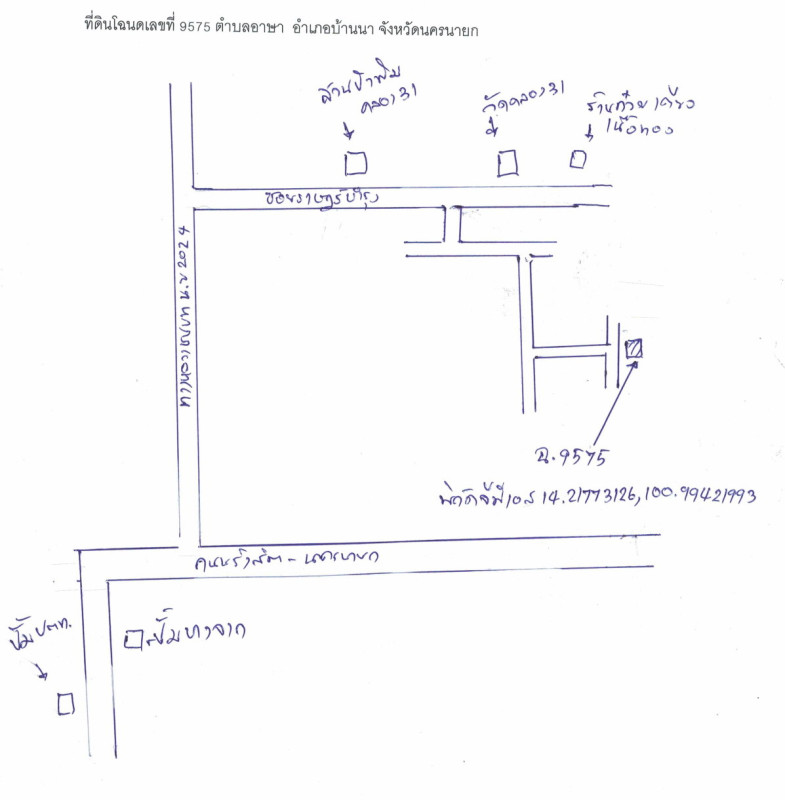 ที่ดินโฉนดเลขที่ 9575 ตำบลอาษา อำเภอบ้านนา จังหวัดนครนายก
คลอง31
วัดคลอง31
ร้านก๋วยเตี๋ยว
เนื้อทอง
ซอยราษฎร์บำรุง
ทางหลวงชนบท น.ย 2024
ฉ.9575
พิกัดจีพีเอส 14.21773126,100.99421993
ถนนรังสิต - นครนายก
ปั๊ม ปตท.
ปั๊มบางจาก